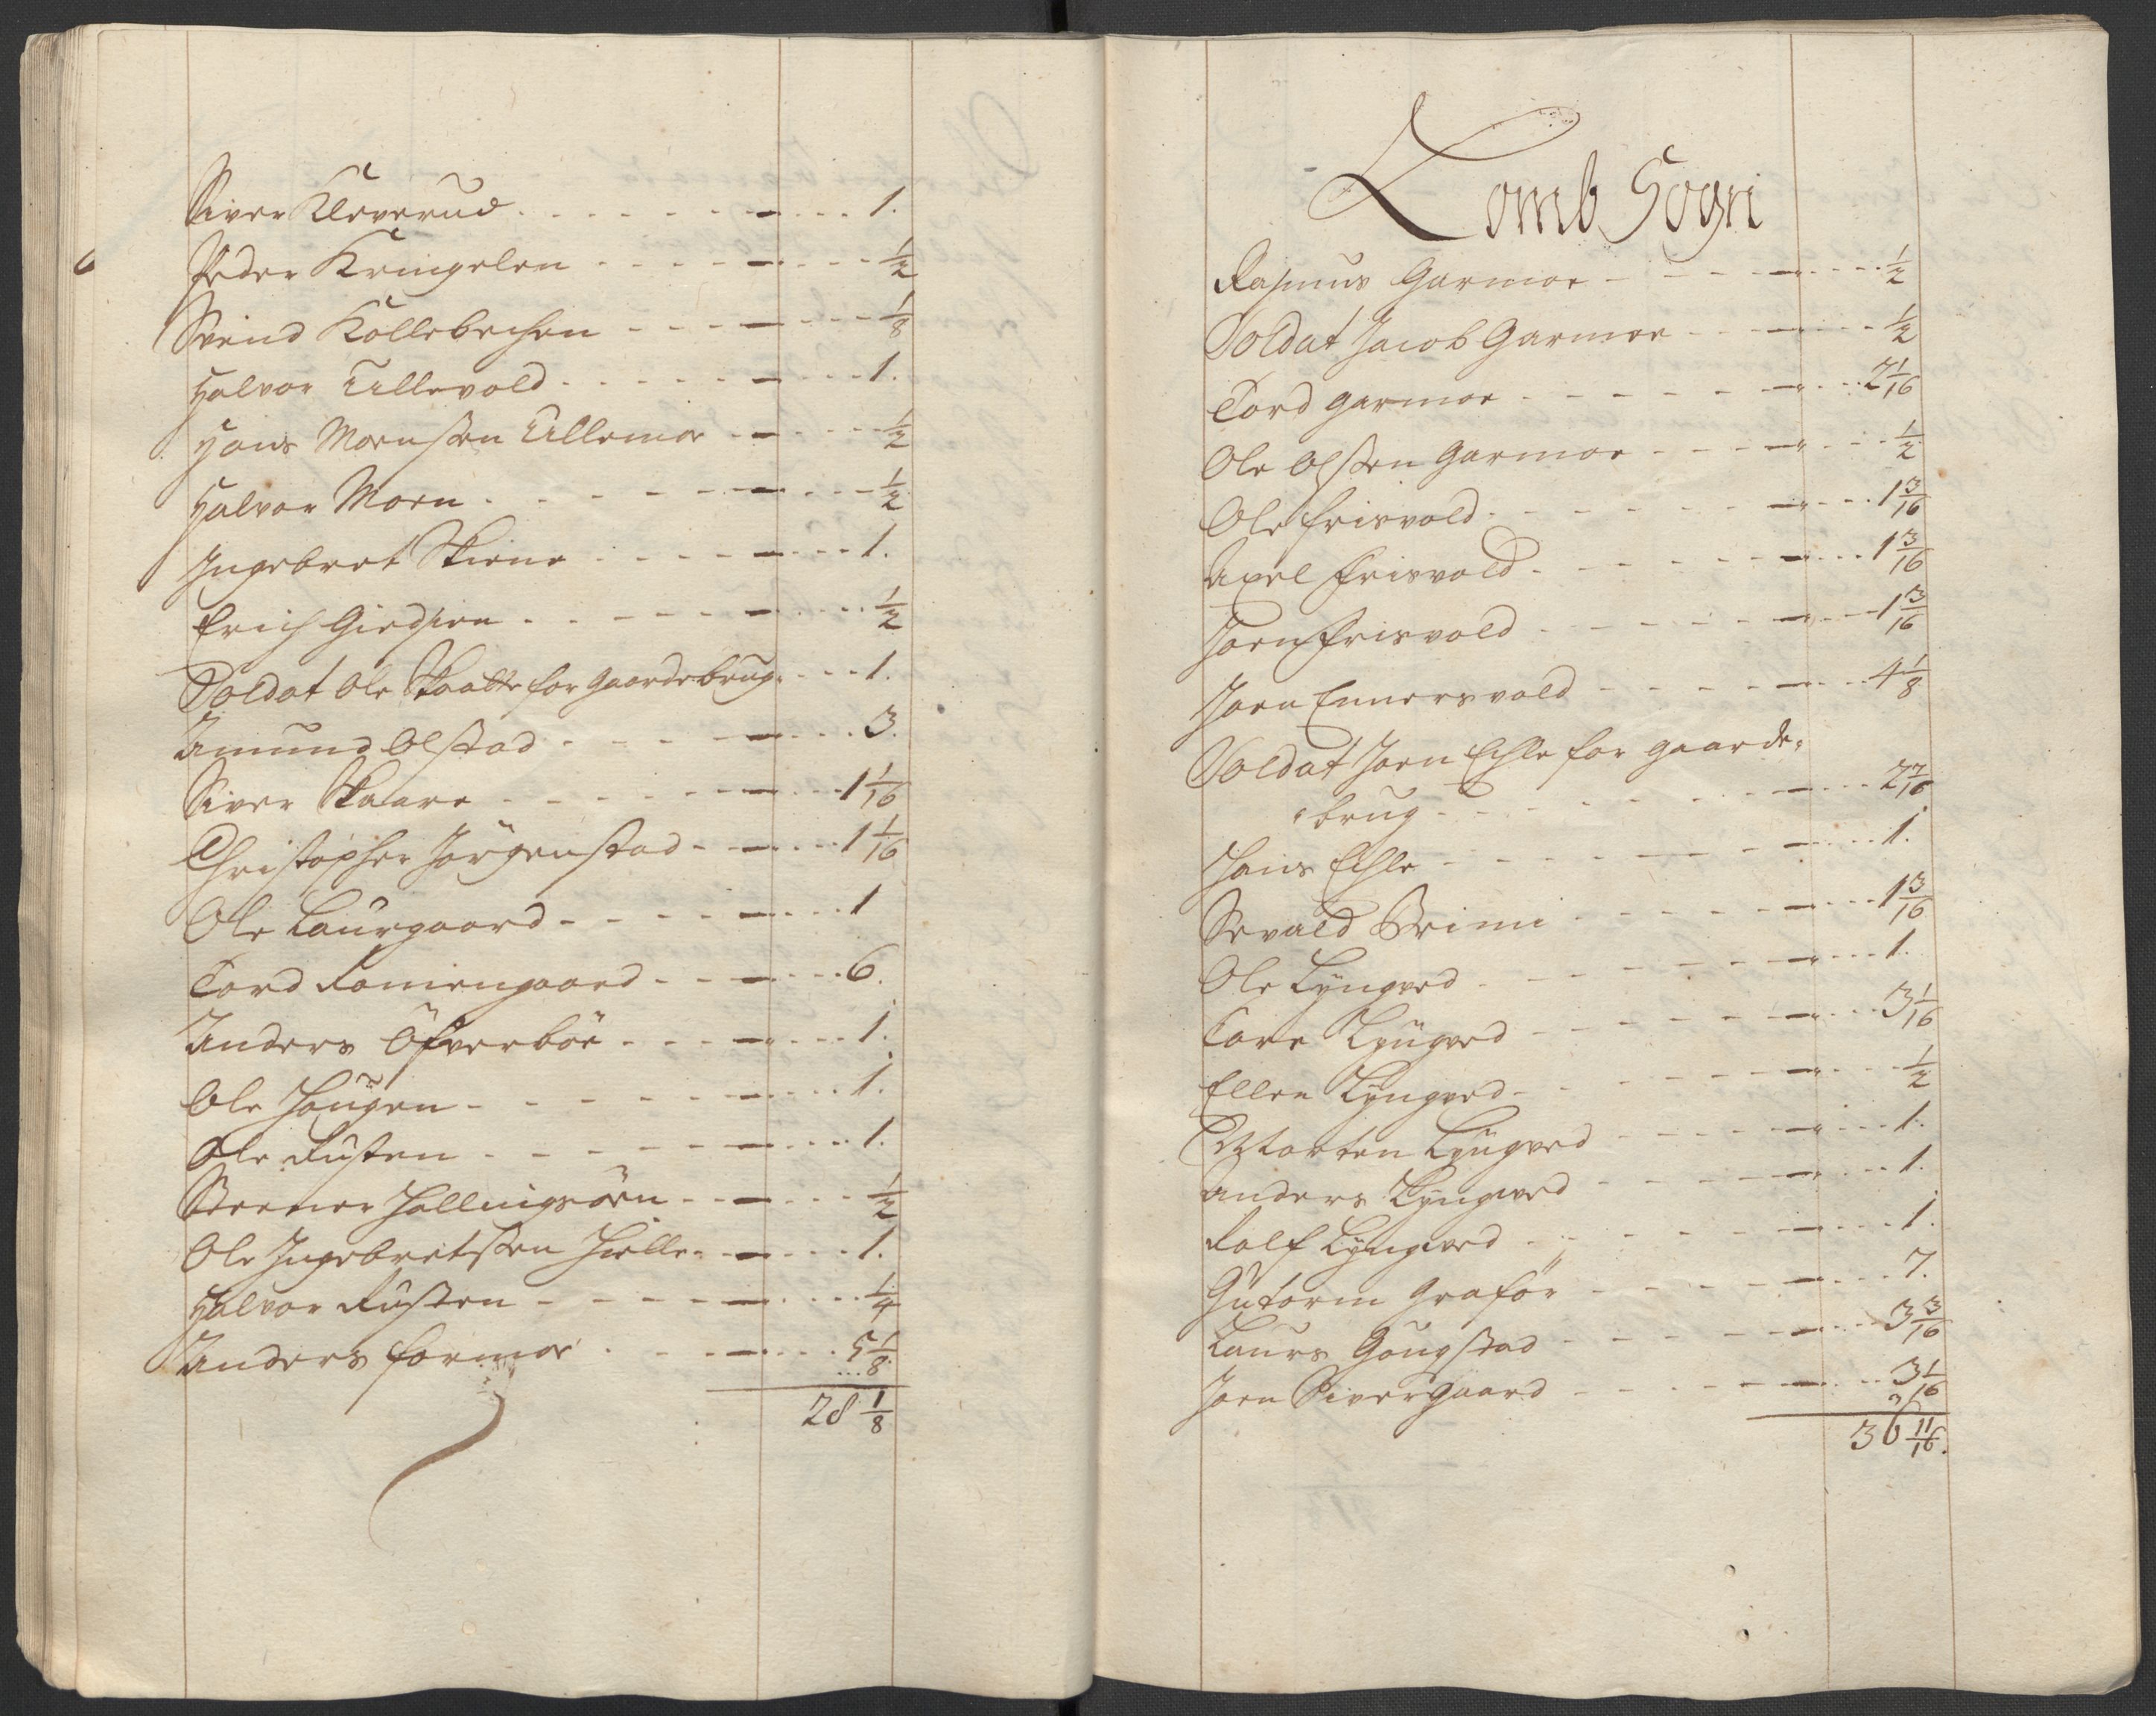 Siver Kleverud - - - - 1.
Peder Kringelen - - - - 1/2
Svend Kollebechen - - - - 1/8
Halvor Ullevold - - - - 1.
Hans Moenssen Ullemoe - - - 1/2
Halvor Moen - - - - 1/2
Ingebret Skiene - - - - 1.
Erich Giedsien - - - - 1/2
Soldat Ole Skaatte for gaardebrug - - 1.
Amund Olstad - - - - 3.
Siver Skaare - - - - 1 1/16
Christopher Jörgenstad - - - 1 1/16
Ole Laurgaard - - - - 1
Tord Romengaard - - - - 6.
Anders Öfverböe - - - - 1.
Ole Haugen - - - - 1.
Ole Rusten - - - - 1.
Steener Hellingsöen - - - - 1/2
Ole Ingebretssen Hielle - - - 1.
Halvor Rusten - - - - 1/4
Anders formoe - - - - 5 1/8
28 1/8
Lomb Sogn
Rasmus Garmoe - - - - 1/2
Soldat Jacob Garmoe - - - - 1/2
Tord garmoe - - - - 2 1/16
Ole Olssen Garmoe - - - - 1/2
Ole frisvold - - - - 1 3/16
Axel frisvold - - - - 1 3/16
Joen frisvold - - - - 1 3/16
Joen Ennersvold - - - - 4 1/8
Soldat Joen Echle for gaarde-
brug - - - - 2 7/16
Hans Echle - - - - 1.
Sevald Brimi - - - - 1 3/16
Ole Lyngved - - - - 1.
Tore Lyngved - - - - 3 1/16
Ellen Lyngved - - - - 1/2
Morten Lyngved - - - - 1.
Anders Lyngved - - - - 1.
Rolf Lyngved - - - - 1.
Gutorm Graför - - - - 7.
Laurs Gaugstad - - - - 3 3/16
Joen Sivergaard - - - - 3 1/16
36 11/16.